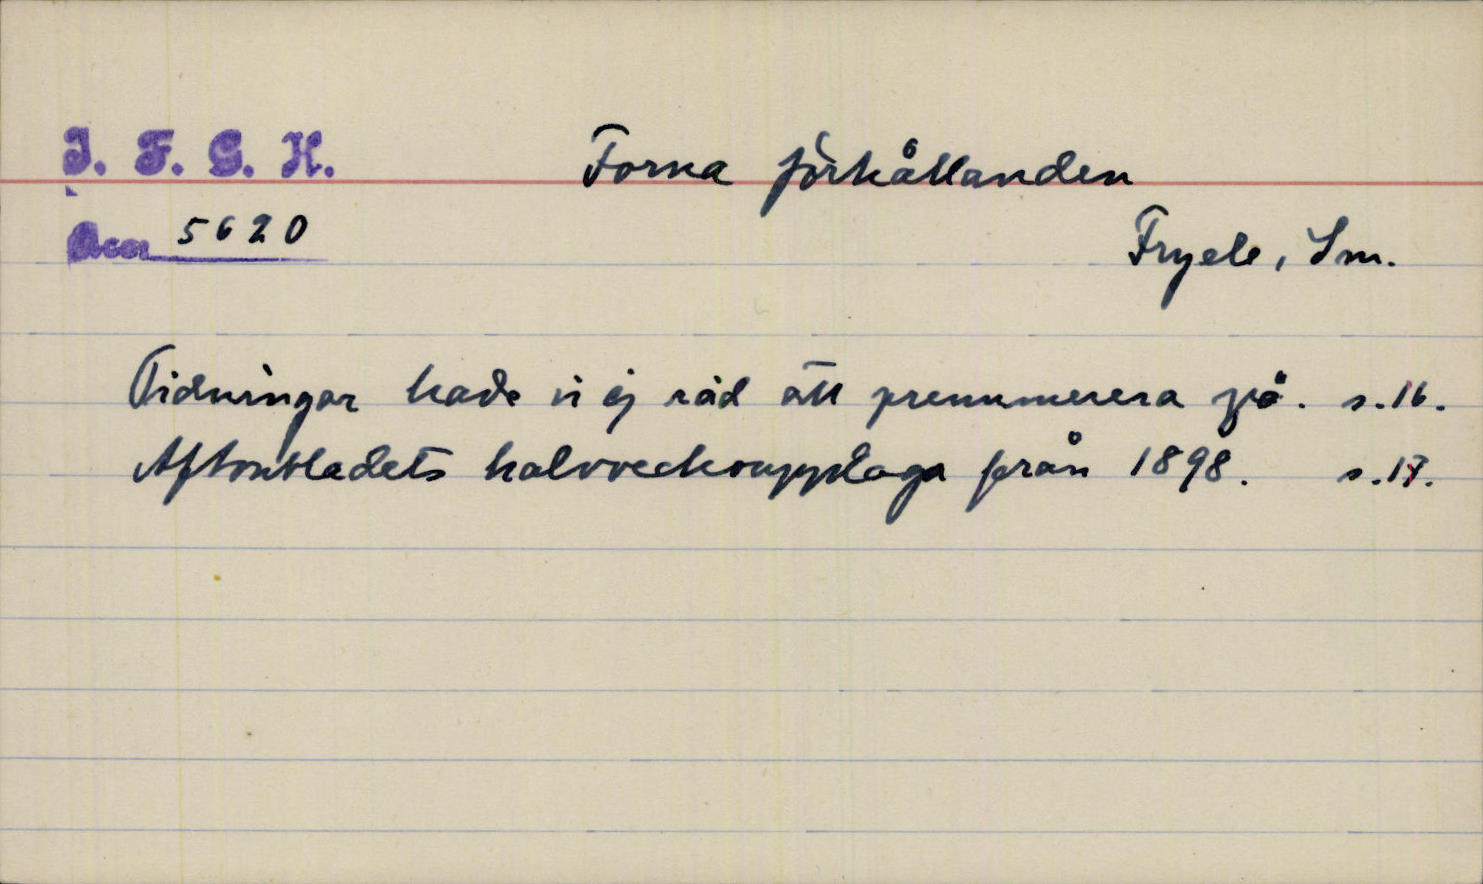 I. F. G. H.
Forna förhållanden
Acc. 5620
Fryele, Sm.
Tidningar hade vi ej råd att prenumerera på. s. 16.
Aftonbladets halvveckoupplaga från 1898. s. 17.